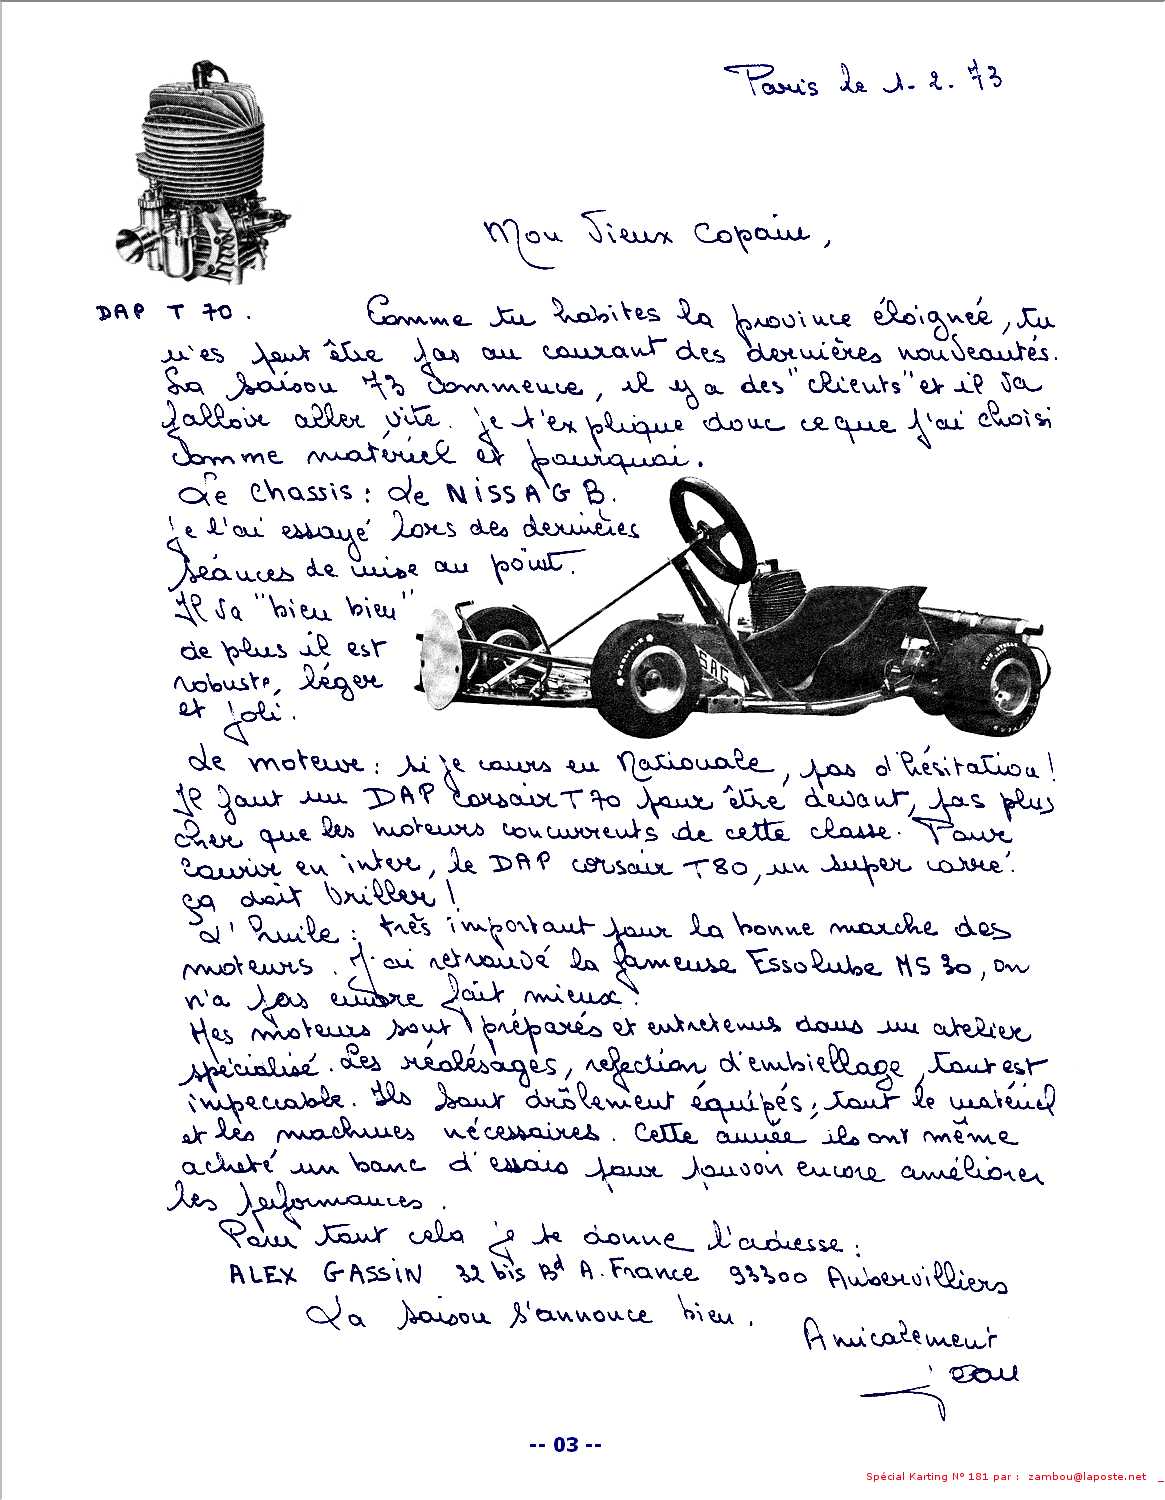 Paris le 1.2.73
Mon Vieux Copain,
DAP T 70.
Comme tu habites la province éloignée, tu
n'es peut être pas au courant des dernières nouveautés.
La saison 73 commence, il y a des "clients" et il va
falloir aller vite. je t'explique donc ce que j'ai choisi
comme matériel et pourquoi.
Le Chassis : Le NISSAG B.
je l'ai essayé lors des dernières
séances de mise au point.
Il va "bien bien"
de plus il est
robuste, léger
et joli.
SAG
Le moteur : si je cours en Nationale, pas d'hésitation !
Il faut un DAP Corsair T70 pour être devant, pas plus
cher que les moteurs concurrents de cette classe. Pour
courir en inter, le DAP corsair T80, un super carré.
ça doit briller !
L'huile : très important pour la bonne marche des
moteurs. J'ai retrouvé la fameuse Essolube HS 30, on
n'a pas encore fait mieux !
Mes moteurs sont préparés et entretenus dans un atelier
spécialisé. Les réalésages, refection d'embiellage, tout est
impeccable. Ils sont drôlement équipés, tout le matériel
et les machines nécessaires. Cette année ils ont même
acheté un banc d'essais pour pouvoir encore améliorer
les performances.
Pour tout cela je te donne l'adresse :
ALEX GASSIN 32 bis Bd A. France 93300 Aubervilliers
La saison s'annonce bien.
Amicalement
jean
-- 03 --
Spécial Karting N° 181 par : zambou@laposte.net